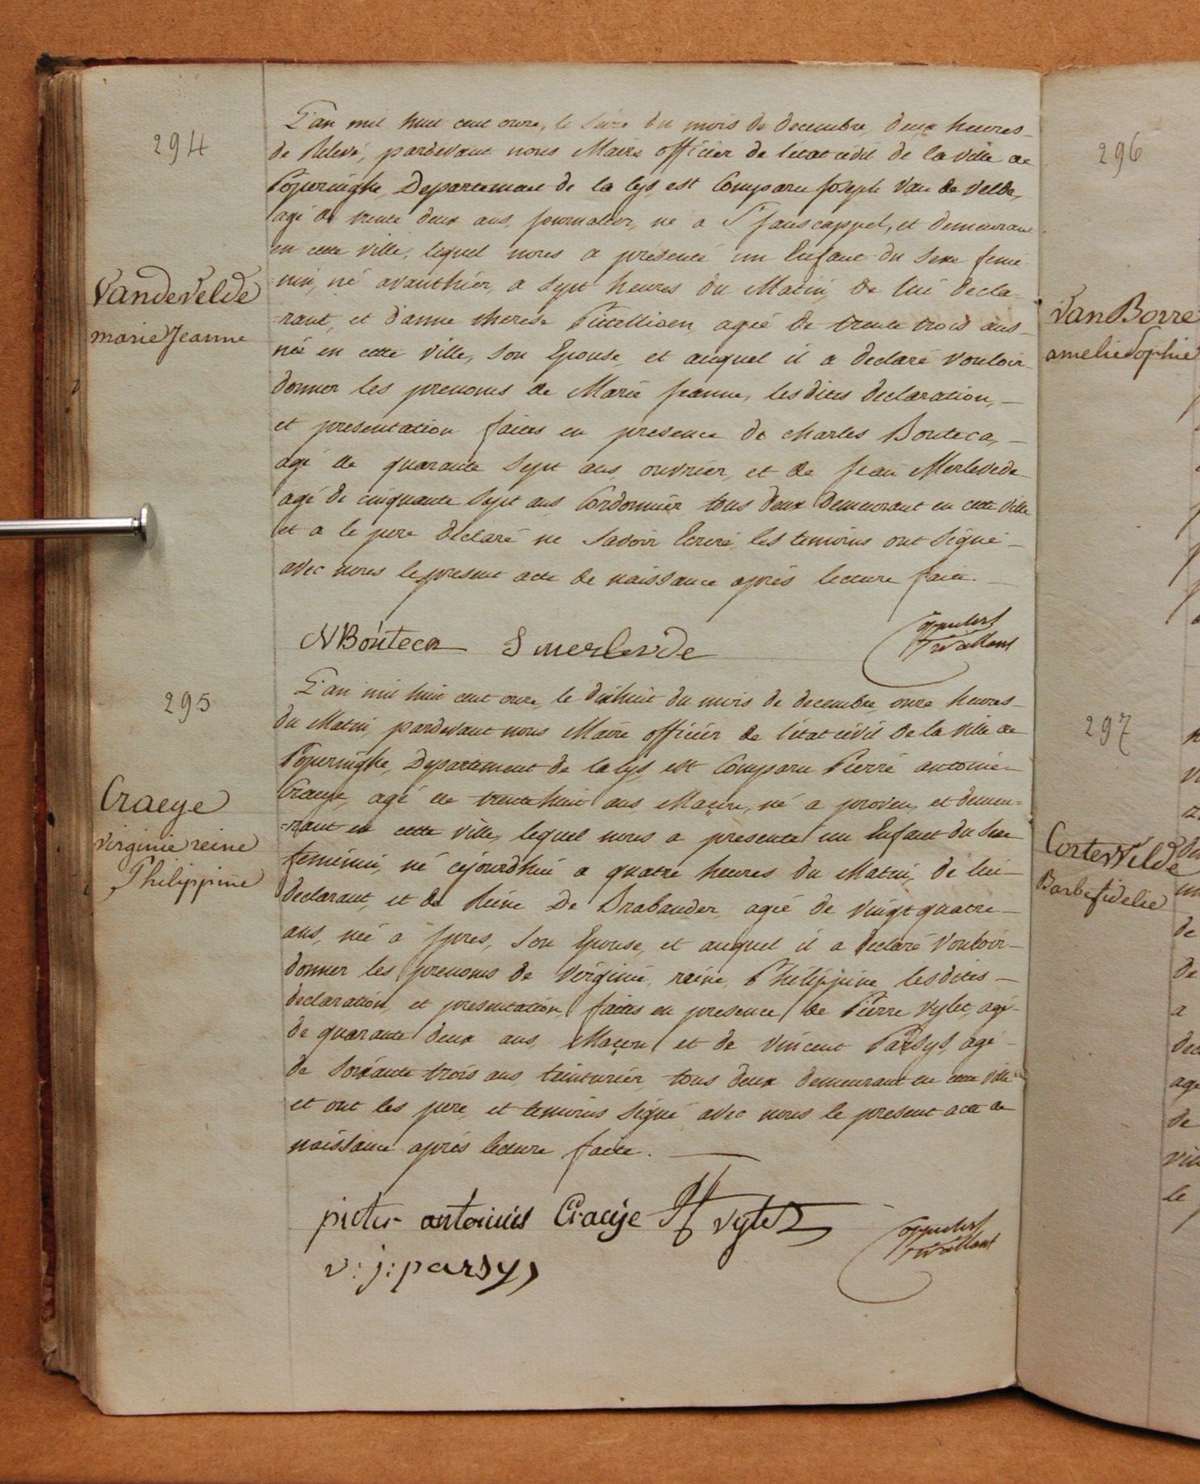 294
Vandevelde
marie Jeanne
L'an mil huit cent onze, le seize du mois de decembre, deux heures
de Relevé, pardevant nous Maire officier de l'etat civil de la ville de
Poperinghe, Departement de la Lys, est Comparu Joseph Van de Velde,
agé de trente deux ans, journalier, né a St jans cappel, et demeurant
en cette ville, lequel nous a présenté un Enfant du Sexe femi
nin, né avanthier, a Sept heures du Matin, de lui decla
rant, et d'anne therese agée de trente trois ans
née en cette ville, Son Epouse, et auquel il a declaré vouloir
donner les prenoms de Marie Jeanne, lesdites declaration, —
et presentation faites en presence de Charles Bonteca, —
agé de quarante Sept ans ouvrier, et de Jean Merlevede
agé de cinquante Sept ans Cordonnier tous deux demeurant en cette ville
et a le pere declaré ne Savoir Ecrire, les temoins ont Signé —
avec nous le present acte de naissance aprés lecture faite. —
Bonteca S merlevede
295
Craeye
virginie reine
Philippine
L'an mil huit cent onze, le dixhuit du mois de decembre onze heures
du Matin, pardevant nous Maire officier de l'etat civil de la ville de
Poperinghe, Departement de la Lys, est Comparu Pierre antoine
Craeye, agé de trente huit ans Maçon, né a proven, et demeu-
-rant en cette ville, lequel nous a presenté un Enfant du Sexe
feminin, né cejourdhui a quatre heures du Matin, de lui
declarant, et de Reine De Brabander, agée de vingt quatre —
ans, née a Ypres, Son Epouse, et auquel il a declaré vouloir —
donner les prenoms de virginie, reine, Philippine lesdites —
declaration, et presentation faites en presence de Pierre Vylet, agé
de quarante deux ans, Maçon et de vincent Parsys, agé
de Soixante trois ans teinturier tous deux demeurant en cette ville
et ont les pere et temoins Signé avec nous le present acte de
naissance aprés lecture faite. —
pieter antonius Craeije vylet
v: j: parsys
296
Van Borre
amelie Sophie
297
Cortervilde
Barbe fidelie